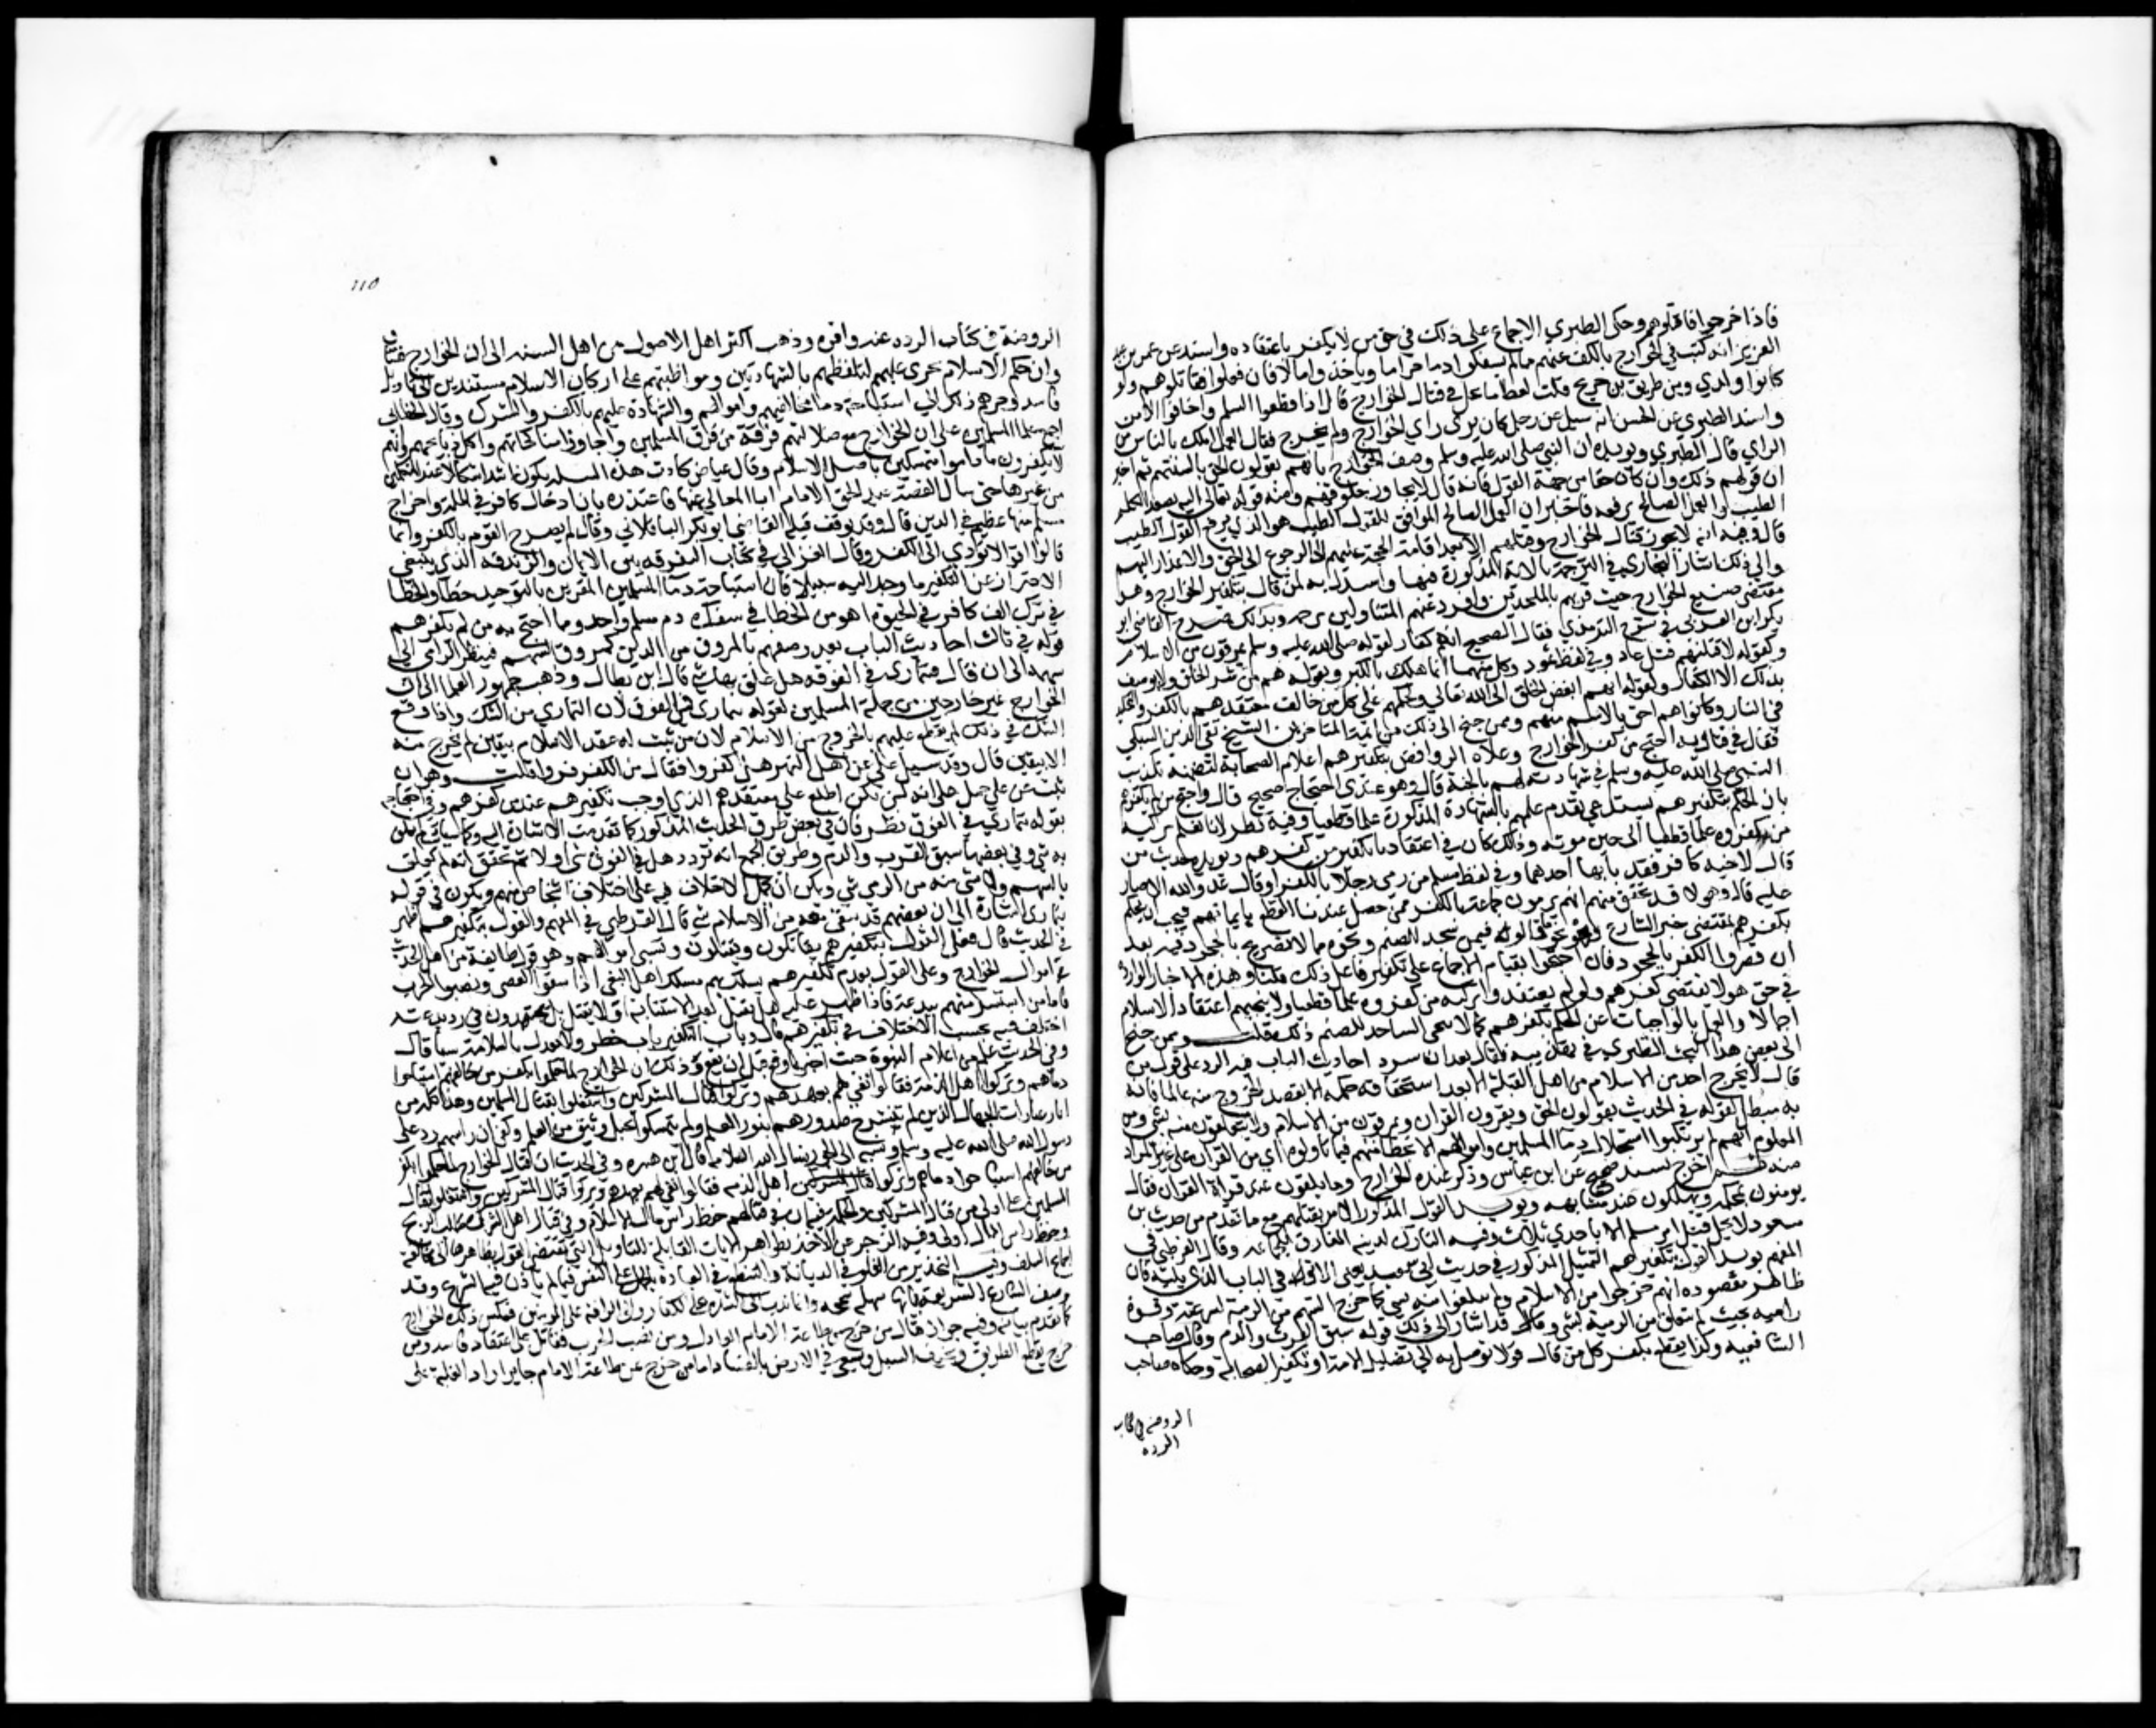 فاذا خرجوا فاقتلوهم وحكى الطبري الاجماع على ذلك في حق من لا يكفر باعتقاده واسند عن عمر بن عبد
العزيز انه كتب في الخوارج بالكف عنهم ما لم يسفكوا دما حراما وياخذوا مالا فان فعلوا فقاتلوهم ولو
كانوا ولدي ومن طريق بن جريج قلت لعطا ما يحل في قتال الخوارج قال اذا قطعوا السبيل واخافوا الامن
واسند الطبري عن الحسن انه سيل عن رجل كان يرى راي الخوارج ولم يخرج فقال العمل املك بالناس من
الراي قال الطبري ويويده ان النبي صلى الله عليه وسلم وصف الخوارج بانهم يقولون الحق بالسنتهم ثم اخبر
ان قولهم ذلك وان كان حقا من جهة القول فانه قال لا يجاوز حلوقهم ومنه قوله تعالى اليه يصعد الكلم
الطيب والعمل الصالح يرفعه فاخبر ان العمل الصالح الموافق للقول الطيب هو الذي يرفع القول الطيب
قال وفيه انه لا يجوز قتال الخوارج وقتلهم الا بعد اقامة الحجة عليهم الى الرجوع الى الحق والاعذار اليهم
والى ذلك اشار البخاري في الترجمة بالاية المذكورة فيها واستدل به لمن قال بتكفير الخوارج وهو
مقتضى صنيع الخوارج حيث قرنهم بالملحدين وافرد عنهم المتاولين بترجمة وبذلك صرح القاضي ابو
بكر ابن العربي في شرح الترمذي فقال الصحيح انهم كفار لقوله صلى الله عليه وسلم يمرقون من الاسلام
وكقوله لاقتلنهم قتل عاد وفي لفظ ثمود وكل منهما انما هلك بالكفر وبقوله هم من شر الخلق ولا يوصف
بذلك الا الكفار ولقوله انهم ابغض الخلق الى الله تعالى ولحكمهم على كل من خالف معتقدهم بالكفر والتخليد
في النار وكانوا هم احق بالاسم منهم وممن جنح الى ذلك من ايمة المتاخرين الشيخ تقي الدين السبكي
فقال في فتاويه احتج من كفر الخوارج وغلاة الروافض بتكفيرهم اعلام الصحابة لتضمنه تكذيب
النبي صلى الله عليه وسلم في شهادته لهم بالجنة قال وهو عندي احتجاج صحيح قال واحتج من لم يكفرهم
بان الحكم بتكفيرهم يستدعي تقدم علمهم بالشهادة المذكورة علما قطعيا وفيه نظر لانا نعلم تزكية
من كفروه علما قطعيا الى حين موته وذلك كاف في اعتقادنا تكفير من كفرهم ويويده حديث من
قال لاخيه كافر فقد باء بها احدهما وفي لفظ مسلم من رمى رجلا بالكفر او قال عدو الله الا حار
عليه قال وهولا قد تحقق منهم انهم يرمون جماعة بالكفر ممن حصل عندنا القطع بايمانهم فيجب ان يحكم
بكفرهم بمقتضى خبر الشارع وهو نحو ما قالوه فيمن سجد للصنم ونحوه مما لا تصريح بالجحود فيه بعد
ان فسروا الكفر بالجحود فان احتجوا بقيام الاجماع على تكفير فاعل ذلك قلنا وهذه الاخبار الواردة
في حق هولا تقتضي كفرهم ولو لم يعتقدوا تزكية من كفروه علما قطعيا ولا ينجيهم اعتقاد الاسلام
اجمالا والعمل بالواجبات عن الحكم بكفرهم كما لا ينجي الساجد للصنم ذلك قلت وممن جنح
الى بعض هذا البحث الطبري في تهذيبه فقال بعد ان سرد احاديث الباب فيه الرد على قول من
قال لا يخرج احد من الاسلام من اهل القبلة الا بعد استحقاقه حكمه الا بقصد الخروج منه عالما فانه
مبطل لقوله في الحديث يقولون الحق ويقرون القران ويمرقون من الاسلام ولا يتعلقون منه بشي ومن
المعلوم انهم لم يرتكبوا استحلال دما المسلمين واموالهم الا بخطا منهم فيما تاولوه من اي القران على غير المراد
منه ثم اخرج بسند صحيح عن ابن عباس وذكر عنده الخوارج وما يلقون عند قراة القران فقال
يومنون بمحكمه ويهلكون عند متشابهه ويويد القول المذكور الامر بقتلهم مع ما تقدم من حديث بن
مسعود لا يحل قتل امر مسلم الا باحدى ثلاث وفيه التارك لدينه المفارق للجماعة وقال القرطبي في
المفهم يويد القول بتكفيرهم التمثيل المذكور في حديث ابي سعيد يعني الاتي في الباب الذي يليه فان
ظاهر مقصوده انهم خرجوا من الاسلام ولم يتعلقوا منه بشي كما خرج السهم من الرمية لسرعته وقوة
راميه بحيث لم يتعلق من الرمية بشي وقد اشار الى ذلك بقوله سبق الفرث والدم وقال صاحب
الشافعيه وكذا يقطع بكفر كل من قال قولا يتوصل به الى تضليل الامة او تكفير الصحابة وحكاه صاحب
الروضة في كتاب
الرده
110
الروضة في كتاب الرده عنه واقره وذهب اكثر اهل الاصول من اهل السنه الى ان الخوارج فساق
وان حكم الاسلام يجري عليهم لتلفظهم بالشهادتين ومواظبتهم على اركان الاسلام مستندين الى تاويل
فاسد وجرهم ذلك الى استباحة دما مخالفيهم واموالهم والشهادة عليهم بالكفر والشرك وقال الخطابي
اجمع علما المسلمين على ان الخوارج مع ضلالتهم فرقة من فرق المسلمين واجازوا مناكحاتهم واكل ذبايحهم وانهم
لا يكفرون ما داموا متمسكين باصل الاسلام وقال عياض كادت هذه المسله تكون اشد اشكالا عند المتكلمين
من غيرها حتى سال الفقيه عبد الحق الامام ابا المعالي عنها فاعتذر بان ادخال كافر في الملة واخراج
مسلم منها عظيم في الدين قال وقد توقف قبله القاضي ابو بكر الباقلاني وقال لم يصرح القوم بالكفر وانما
قالوا اقوالا تودي الى الكفر وقال الغزالي في كتاب التفرقه بين الايمان والزندقه الذي ينبغي
الاحتراز عن التكفير ما وجد اليه سبيلا فان استباحة دما المسلمين المقرين بالتوحيد خطا والخطا
في ترك الف كافر في الحيوة اهون من الخطا في سفك دم مسلم واحد ومما احتج به من لم يكفرهم
قوله في ثالث احاديث الباب بعد وصفهم بالمروق من الدين كمروق السهم فينظر الرامي الى
سهمه الى ان قال فيتمارى في الفوقه هل علق بها شي قال ابن بطال وذهب جمهور العلما الى ان
الخوارج غير خارجين من جملة المسلمين لقوله يتمارى في الفوق لان التماري من الشك واذا وقع
الشك في ذلك لم يقطع عليهم بالخروج من الاسلام لان من ثبت له عقد الاسلام بيقين لم يخرج منه
الا بيقين قال وقد سيل علي عن اهل النهر هل كفروا فقال من الكفر فروا قلت وهو ان
ثبت عن علي حمل على انه لم يكن اطلع على معتقدهم الذي اوجب تكفيرهم عند من كفرهم وفي احتجاجه
بقوله يتمارى في الفوق نظر فان في بعض طرق الحديث المذكور كما تقدمت الاشارة اليه وكما سياتي لم يعلق
به شي وفي بعضها سبق الفرث والدم وطريق الجمع انه تردد هل في الفوق شي اولا ثم تحقق انه لم يعلق
بالسهم ولا شي منه من الرمي شي ويمكن ان يحمل الاختلاف فيه على اختلاف اشخاص منهم ويكون في قوله
يتمارى اشارة الى ان بعضهم قد يبقى معه من الاسلام شي قال القرطبي في المفهم والقول بتكفيرهم اظهر
في الحديث قال فعلى القول بتكفيرهم يقاتلون ويقتلون وتسبى اموالهم وهو قول طايفة من اهل الحديث
في اموال الخوارج وعلى القول بعدم تكفيرهم يسلك بهم مسلك اهل البغي اذا شقوا العصى ونصبوا الحرب
فاما من استسر منهم ببدعة فاذا ظهر عليه هل يقتل بعد الاستتابة او لا يقتل بل يجتهدون في رد بدعته
اختلف فيه بحسب الاختلاف في تكفيرهم قال وباب التكفير باب خطر ولا نعدل بالسلامة شيا قال
وفي الحديث علم من اعلام النبوة حيث اخبر بما وقع قبل ان يقع وذلك ان الخوارج لما حكموا بكفر من خالفهم استباحوا
دماهم وتركوا اهل الذمة فقالوا نفي لهم بعهدهم وتركوا قتال المشركين واشتغلوا بقتال المسلمين وهذا كله من
اثار عبادات الجهال الذين لم تنشرح صدورهم بنور العلم ولم يتمسكوا بحبل وثيق من العلم وكفى ان راسهم رد على
رسول الله صلى الله عليه وسلم ونسبه الى الجور نسال الله السلامة قال ابن هبيره وفي الحديث ان قتال الخوارج لما حكموا بكفر
من خالفهم استباحوا دماهم وتركوا اهل الذمه فقالوا نفي لهم بعهدهم وتركوا قتال المشركين واشتغلوا بقتال
المسلمين اولى من قتال المشركين والحكمه فيه ان في قتالهم حفظ راس مال الاسلام وفي قتال اهل الشرك طلب الربح
وحفظ راس المال اولى وفيه الزجر عن الاخذ بظواهر الايات القابلة للتاويل التي يقتضي القول بظاهرها الى مخالفة
اجماع السلف وفيه التحذير من الغلو في الديانة والتنطع في العبادة بالحمل على النفس فيما لم ياذن فيه الشرع وقد
وصف الشارع الشريعة بانها سهلة سمحه وانما ندب الى الشدة على الكفار والى الرافه على المومنين فعكس ذلك الخوارج
كما تقدم بيانه وفيه جواز قتال من خرج عن طاعة الامام العادل ومن نصب الحرب فقاتل على اعتقاد فاسد ومن
خرج يقطع الطريق ويخيف السبيل ويسعى في الارض بالفساد اما من خرج عن طاعة الامام جاير اراد الغلبة على